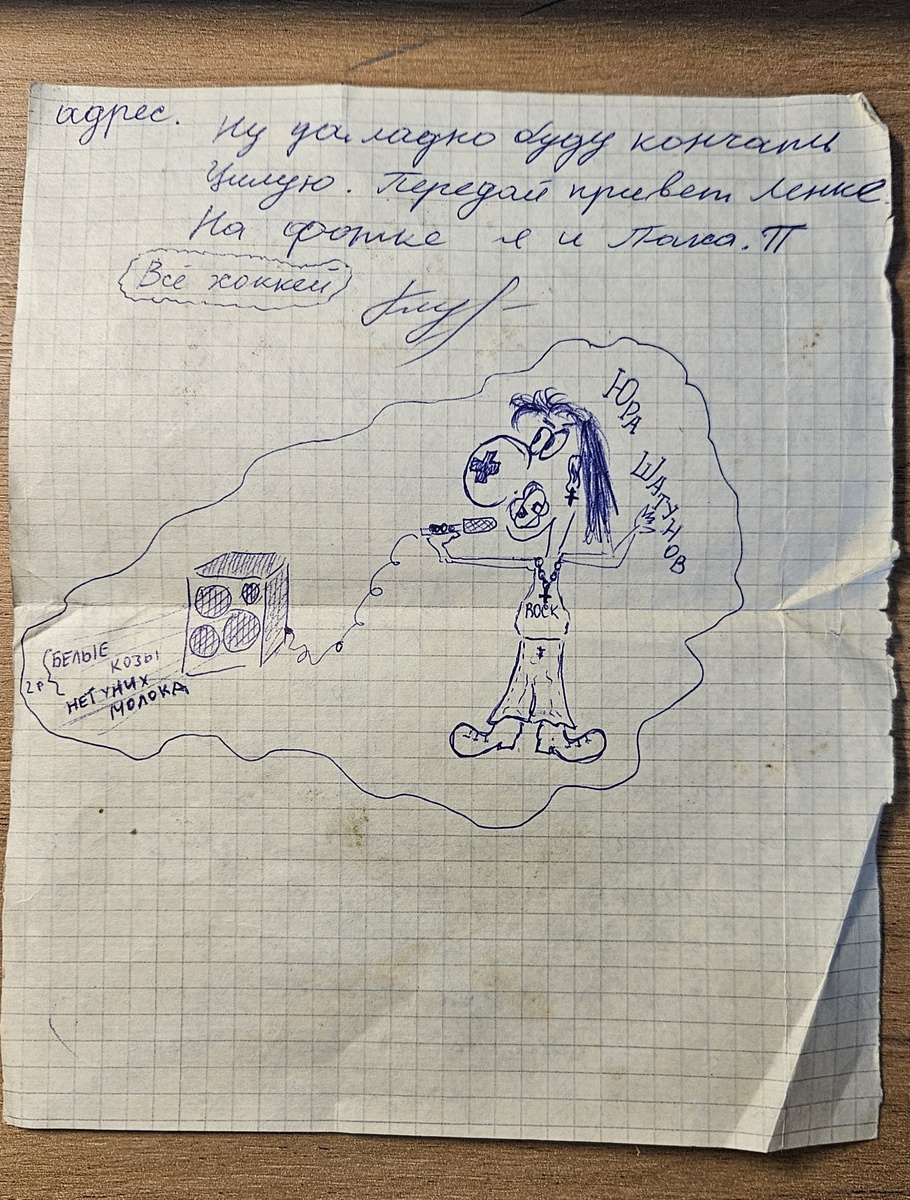 адрес.
Ну да ладно буду кончать
Цилую. Передай привет Ленке.
На фотке я и Паха. П
Всё хоккей
ЮРА ШАТУНОВ
ROCK
БЕЛЫЕ
КОЗЫ
2р.
НЕТ У НИХ
МОЛОКА